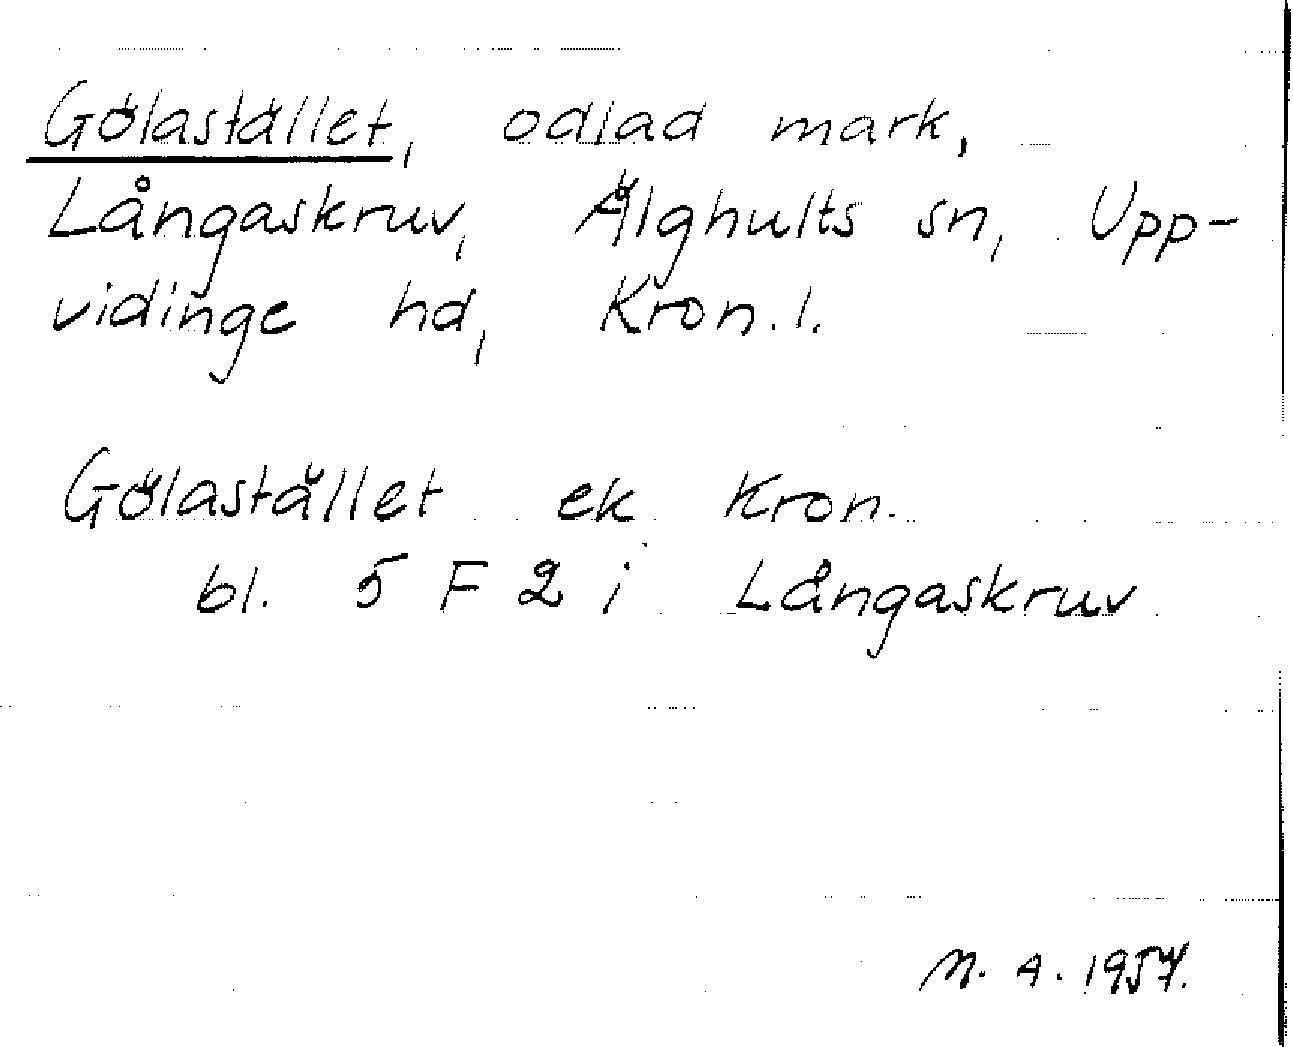 Gölastället, odlad mark,
Långaskruv, Älghults sn, Upp-
vidinge hd, Kron. l.
Gölastället ek Kron.
bl. 5 F 2 i Långaskruv
M. A. 1957.